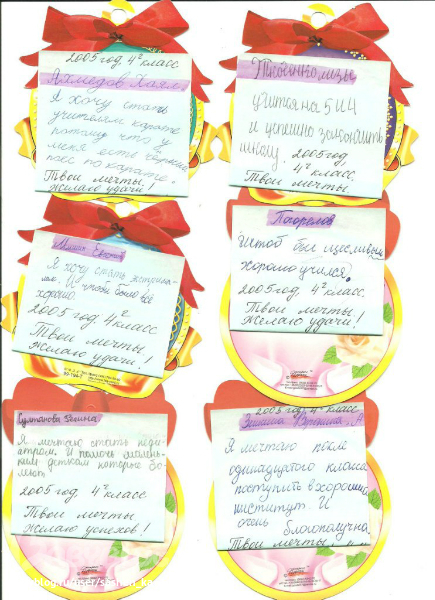 2005 год, 4² класс
Ахмедов Хаял
Я хочу стать
учителем карате
потому что у
меня есть чёрный
пояс по карате.
Твои мечты
Желаю удачи!
учится на 5 и 4
и успешно закончить
школу. 2005 год
4² класс.
Твои мечты
Я хочу стать
И чтобы было всё
хорошо.
2005 год 4² класс
Твои мечты
Желаю удачи!
Погорелов
Чтоб был щесливым
хорошо учился.
2005 год, 4² класс.
Твои мечты
Желаю удачи!
Султанова Регина
Я мечтаю стать педи-
атром. И помочь малень-
ким деткам которые бо-
леют
2005 год. 4² класс
Твои мечты
Желаю успехов!
2005 год, 4² класс
Я мечтаю после
одинадцатого класса
поступить в хороший
институт. И
очень благополучна
Твои мечты